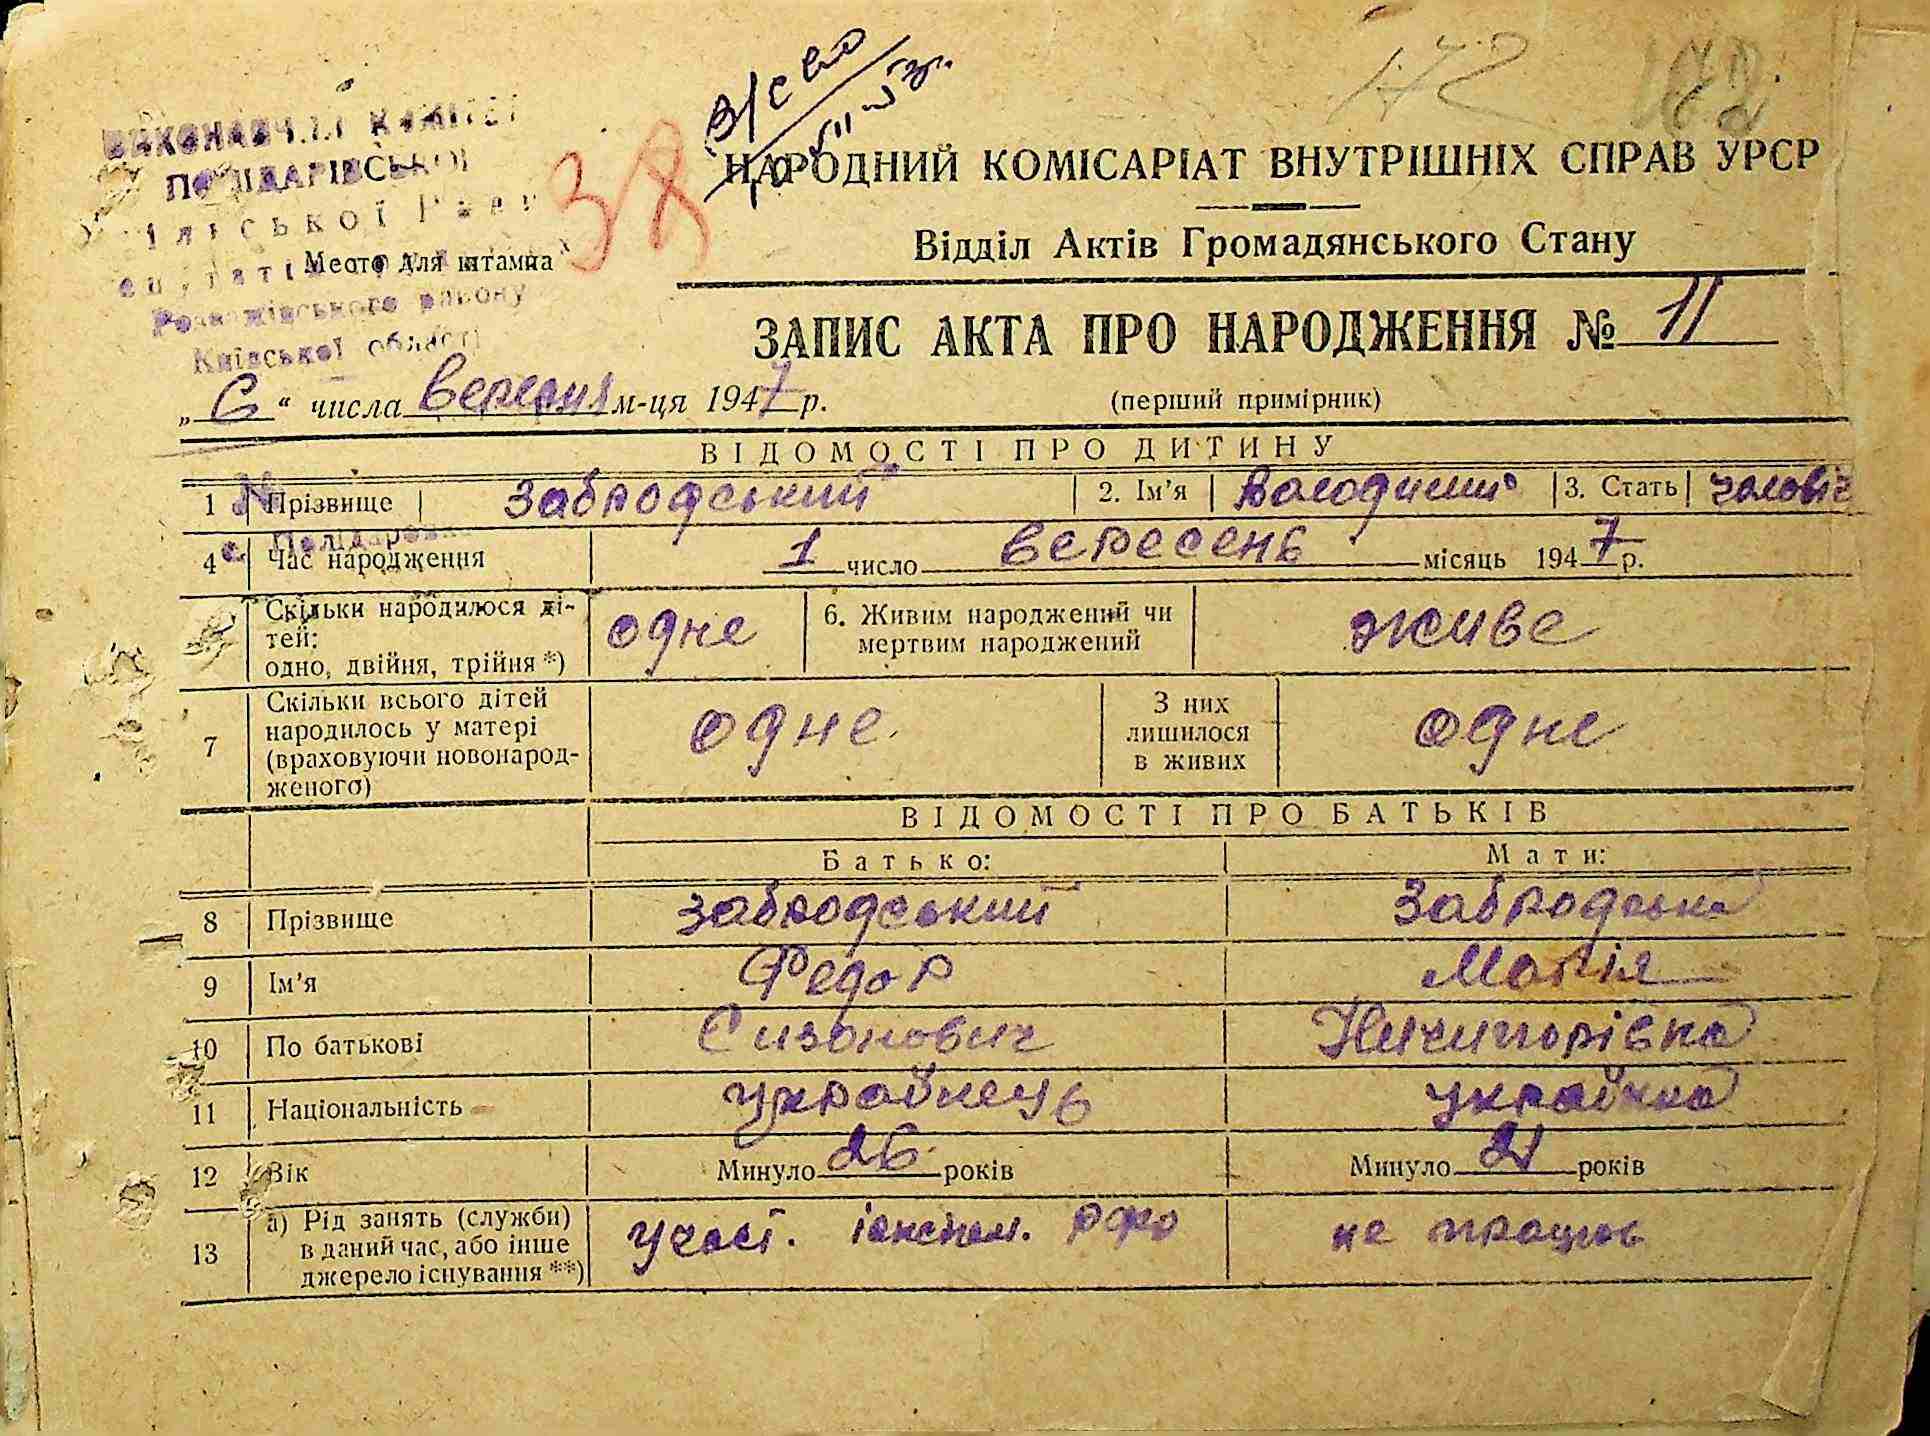 172
38
НАРОДНИЙ КОМІСАРІАТ ВНУТРІШНІХ СПРАВ УРСР
Відділ Актів Громадянського Стану
Место для штампа
Київської області
ЗАПИС АКТА ПРО НАРОДЖЕННЯ № 11
„6“ числа вересня м-ця 1947 р.
(перший примірник)
ВІДОМОСТІ ПРО ДИТИНУ
1 Прізвище Забродський 2. Ім'я Володимир 3. Стать чоловіч
4 Час народження 1 число вересень місяць 1947 р.
Скільки народилося ді-
тей:
одно, двійня, трійня *) одне 6. Живим народжений чи
мертвим народжений живе
7 Скільки всього дітей
народилось у матері
(враховуючи новонарод-
женого) одне З них
лишилося
в живих одне
ВІДОМОСТІ ПРО БАТЬКІВ
Батько: Мати:
8 Прізвище Забродський Забродська
9 Ім'я Федор Марія
10 По батькові Сизонович Ничипорівна
11 Національність українець українка
12 Вік Минуло 26 років Минуло 21 років
13 а) Рід занять (служби)
в даний час, або інше
джерело існування **) не працює